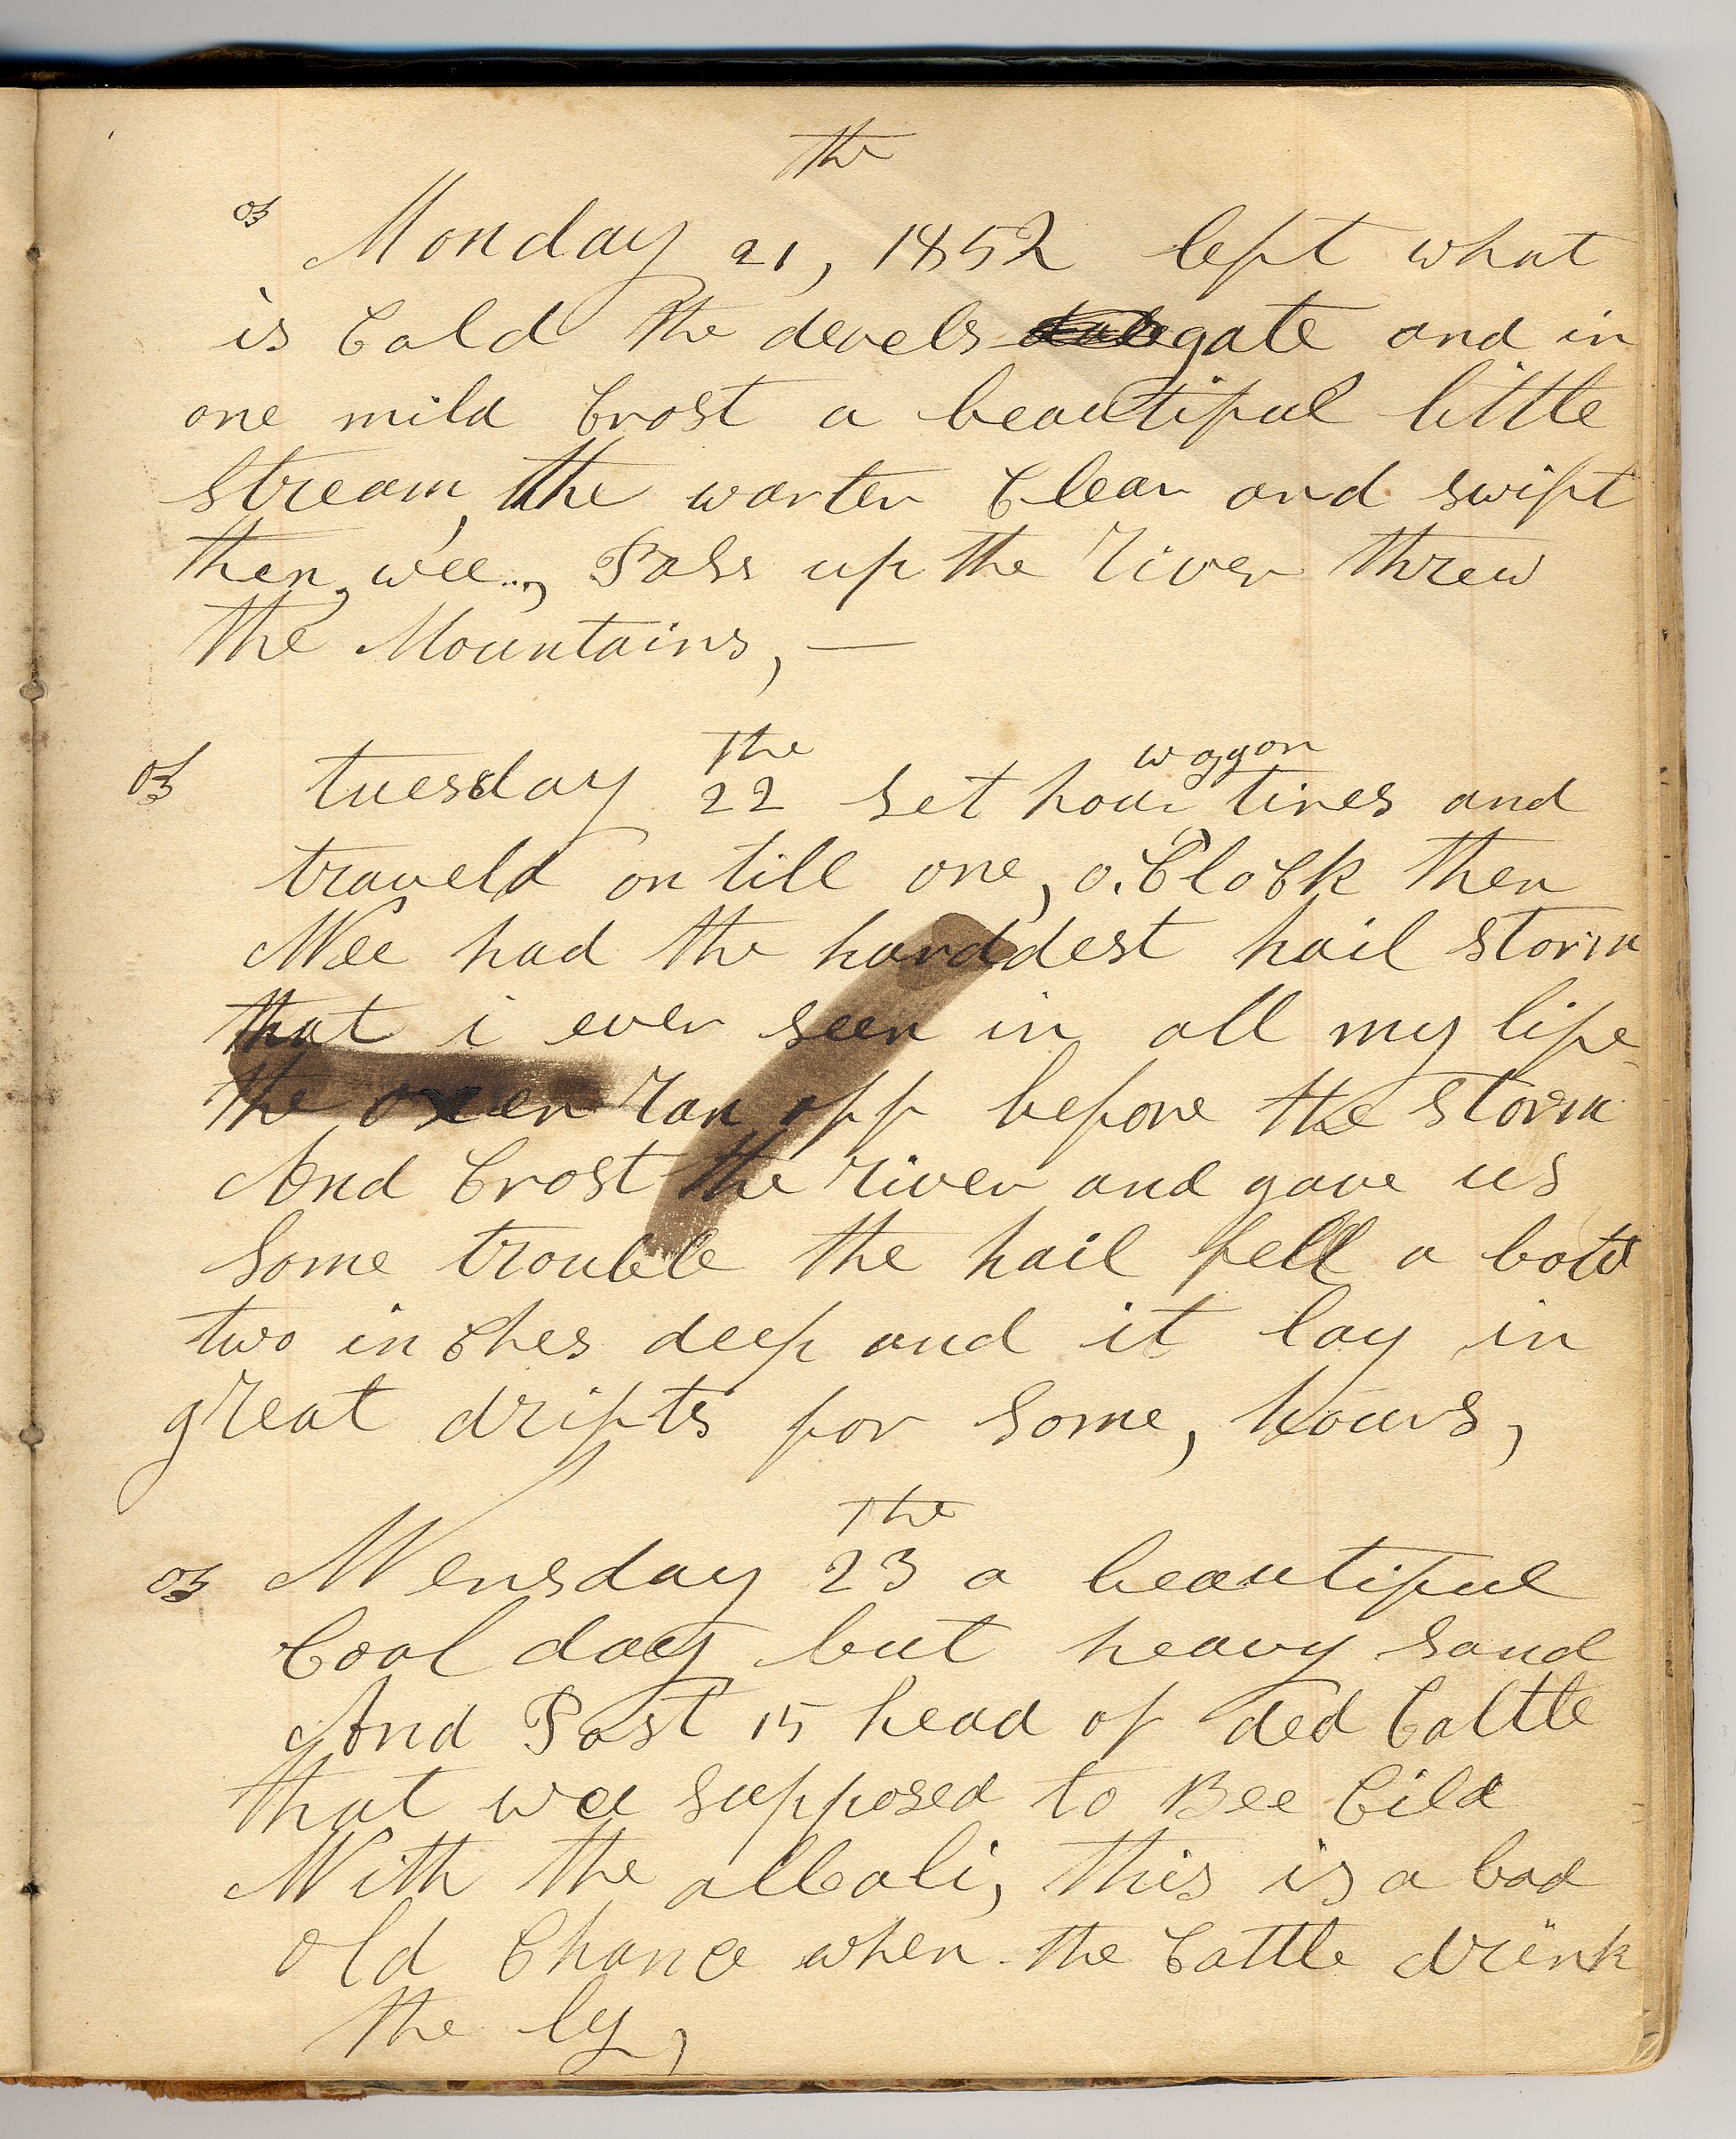 the
Monday 21, 1852 left what
is Cald the devels gate and in
one mild Crost a beautiful little
stream, the warter Clear and swift
then, wee, Pass up the river threw
the Mountains, —
the waggon
tuesday 22 set hour tires and
traveld on till one, o.Clock then
Wee had the harddest hail storm
that i ever seen in all my life
the oxen ran off before the storm
And Crost the river and gave us
Some trouble the hail fell a bout
two in Ches deep and it lay in
great drifts for Some, hours,
the
Wensday 23 a beautiful
Cool day but heavy sand
And Past 15 head of ded Cattle
that wee supposed to Bee Cild
With the alCali, this is a bad
old Chance when the Cattle drink
the ly,